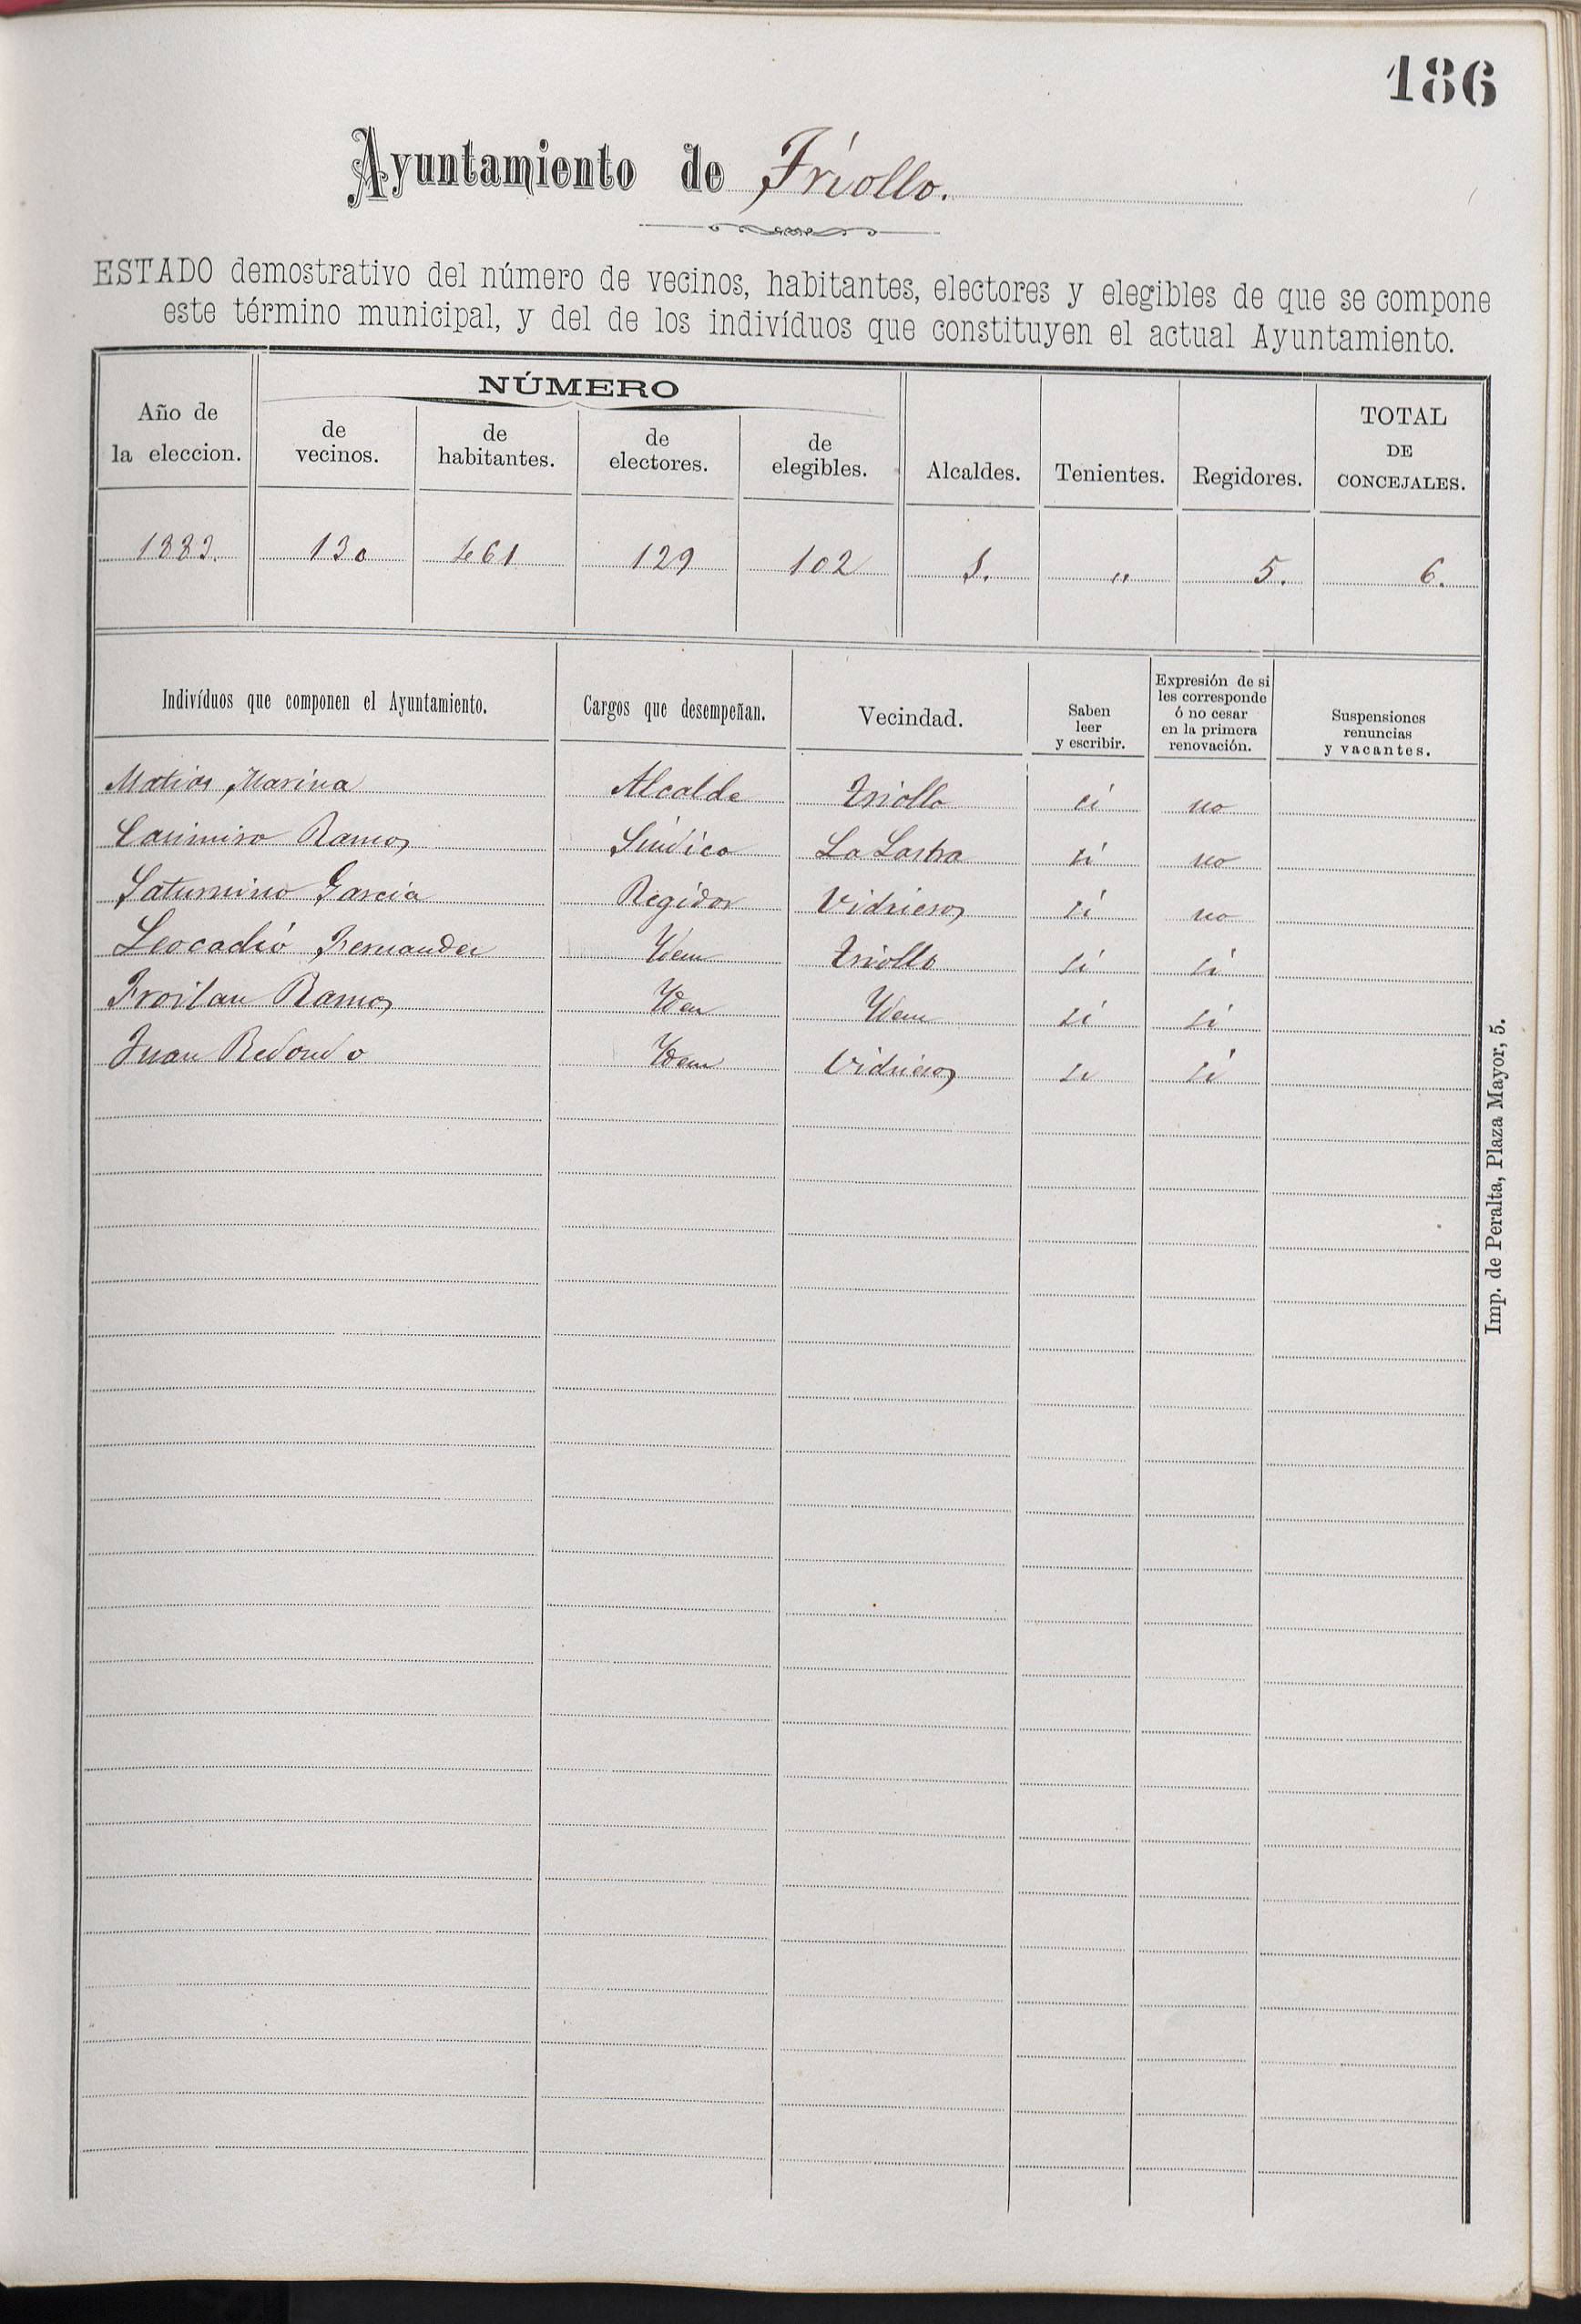 186
Ayuntamiento de Triollo.
ESTADO demostrativo del número de vecinos, habitantes, electores y elegibles de que se compone
este término municipal, y del de los indivíduos que constituyen el actual Ayuntamiento.
Año de la eleccion. NÚMERO de vecinos. de habitantes. de electores. de elegibles. Alcaldes. Tenientes. Regidores. TOTAL DE CONCEJALES.
1883. 130 461 129 102 1. " 5. 6.
Indivíduos que componen el Ayuntamiento. Cargos que desempeñan. Vecindad. Saben leer y escribir. Expresión de si les corresponde ó no cesar en la primera renovación. Suspensiones renuncias y vacantes.
Matias Marina Alcalde Triollo si no
Casimiro Ramos Síndico La Lastra si no
Saturnino Garcia Regidor Vidrieros si no
Leocadio Fernandez Ydem Triollo si si
Froilan Ramos Yden Ydem si si
Juan Redondo Ydem Vidrieros si si
Imp. de Peralta, Plaza Mayor, 5.